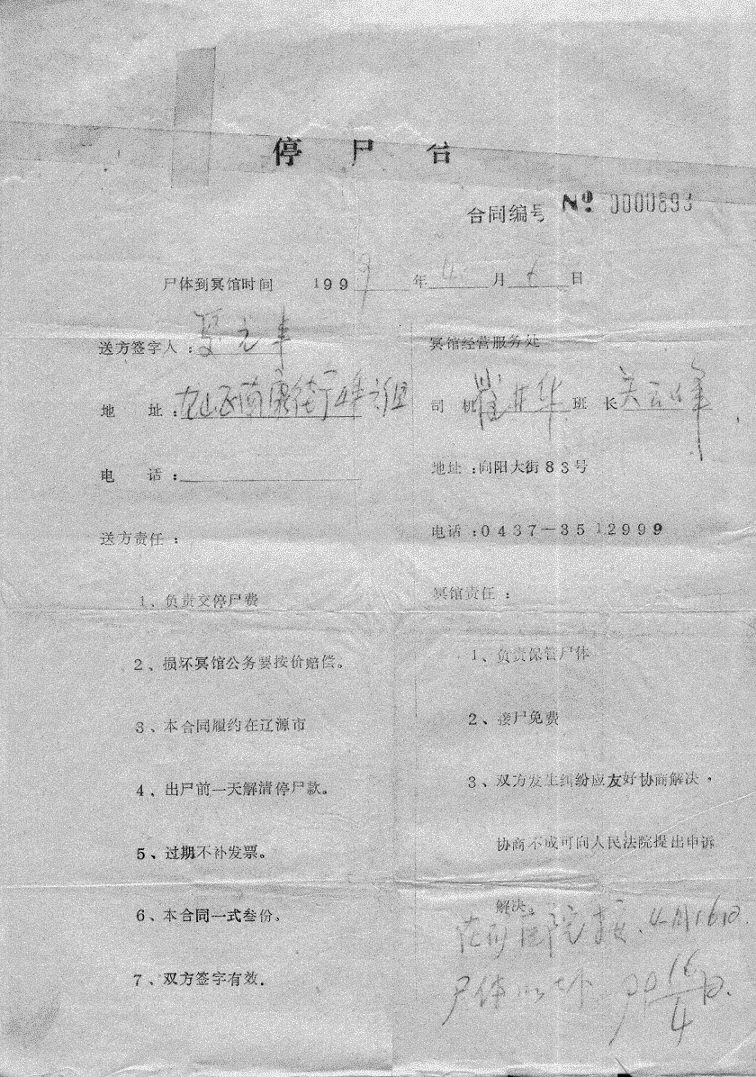 停尸合
合同编号 № 0000893
尸体到冥馆时间 1999年4月6日
送方签字人：
地 址：龙山区南康街
电 话：
送方责任：
1、负责交停尸费
2、损坏冥馆公务要按价赔偿。
3、本合同履约在辽源市
4、出尸前一天解清停尸款。
5、过期不补发票。
6、本合同一式叁份。
7、双方签字有效.
冥馆经营服务处
司 机 班 长
地址：向阳大街83号
电话：0437－3512999
冥馆责任：
1、负责保管尸体
2、接尸免费
3、双方发生纠纷应友好协商解决，
协商不成可向人民法院提出申诉
解决。
院接.4月16日.
尸体